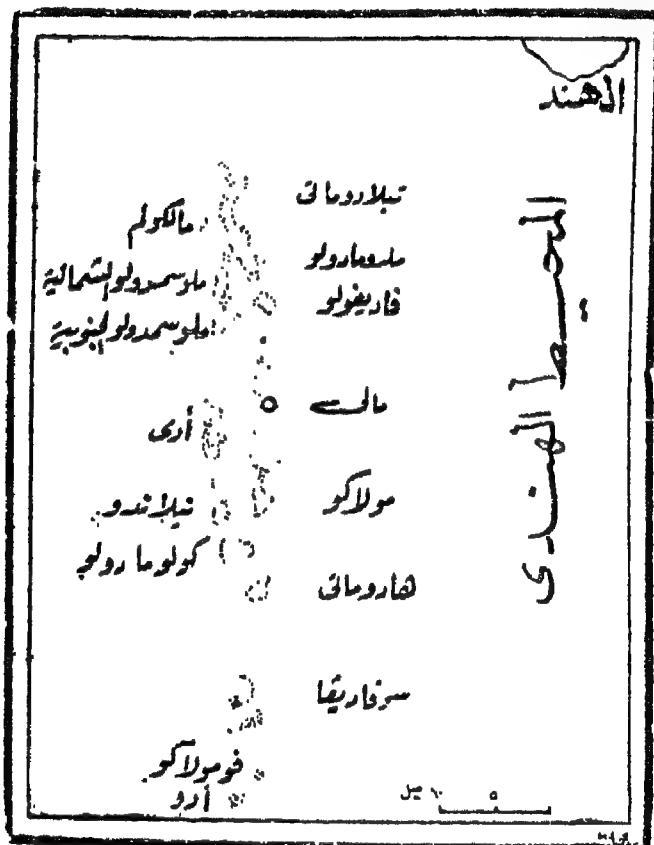 الهند
المحيط الهندى
تيلادوماتى
مالكولم
ملومادولو
ملوسمدولو الشمالية
فاديفولو
ملوسمدولو الجنوبية
مالى
أرى
مولاكو
نيلاندو
كولومادولو
هادوماتى
سوفاديفا
فومولاكو
أدو
١٠ ٥ ميل